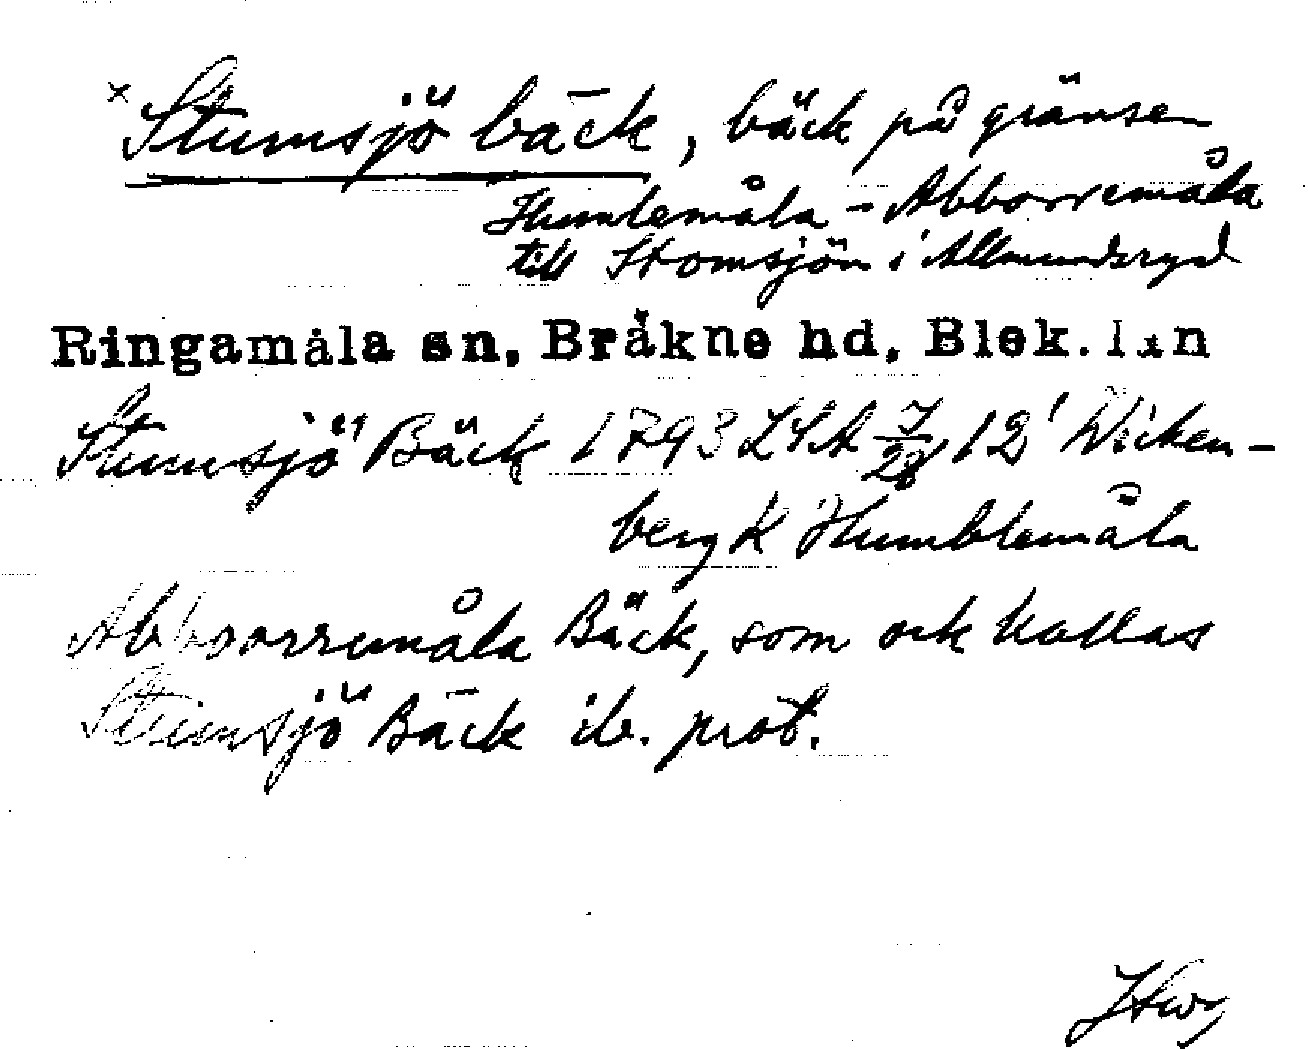 x Stumsjö bäck, bäck på gränsen
Humlemåla - Abborremåla
till Stomsjön i Allmundsryd
Ringamåla sn, Bräkne hd. Blek. län
Stumsjö Bäck 1793 LSA 7/28 12' Wicken-
berg K Humblemåla
Abboorremåla Bäck, som ock kallas
Stumsjö Bäck ib. prot.